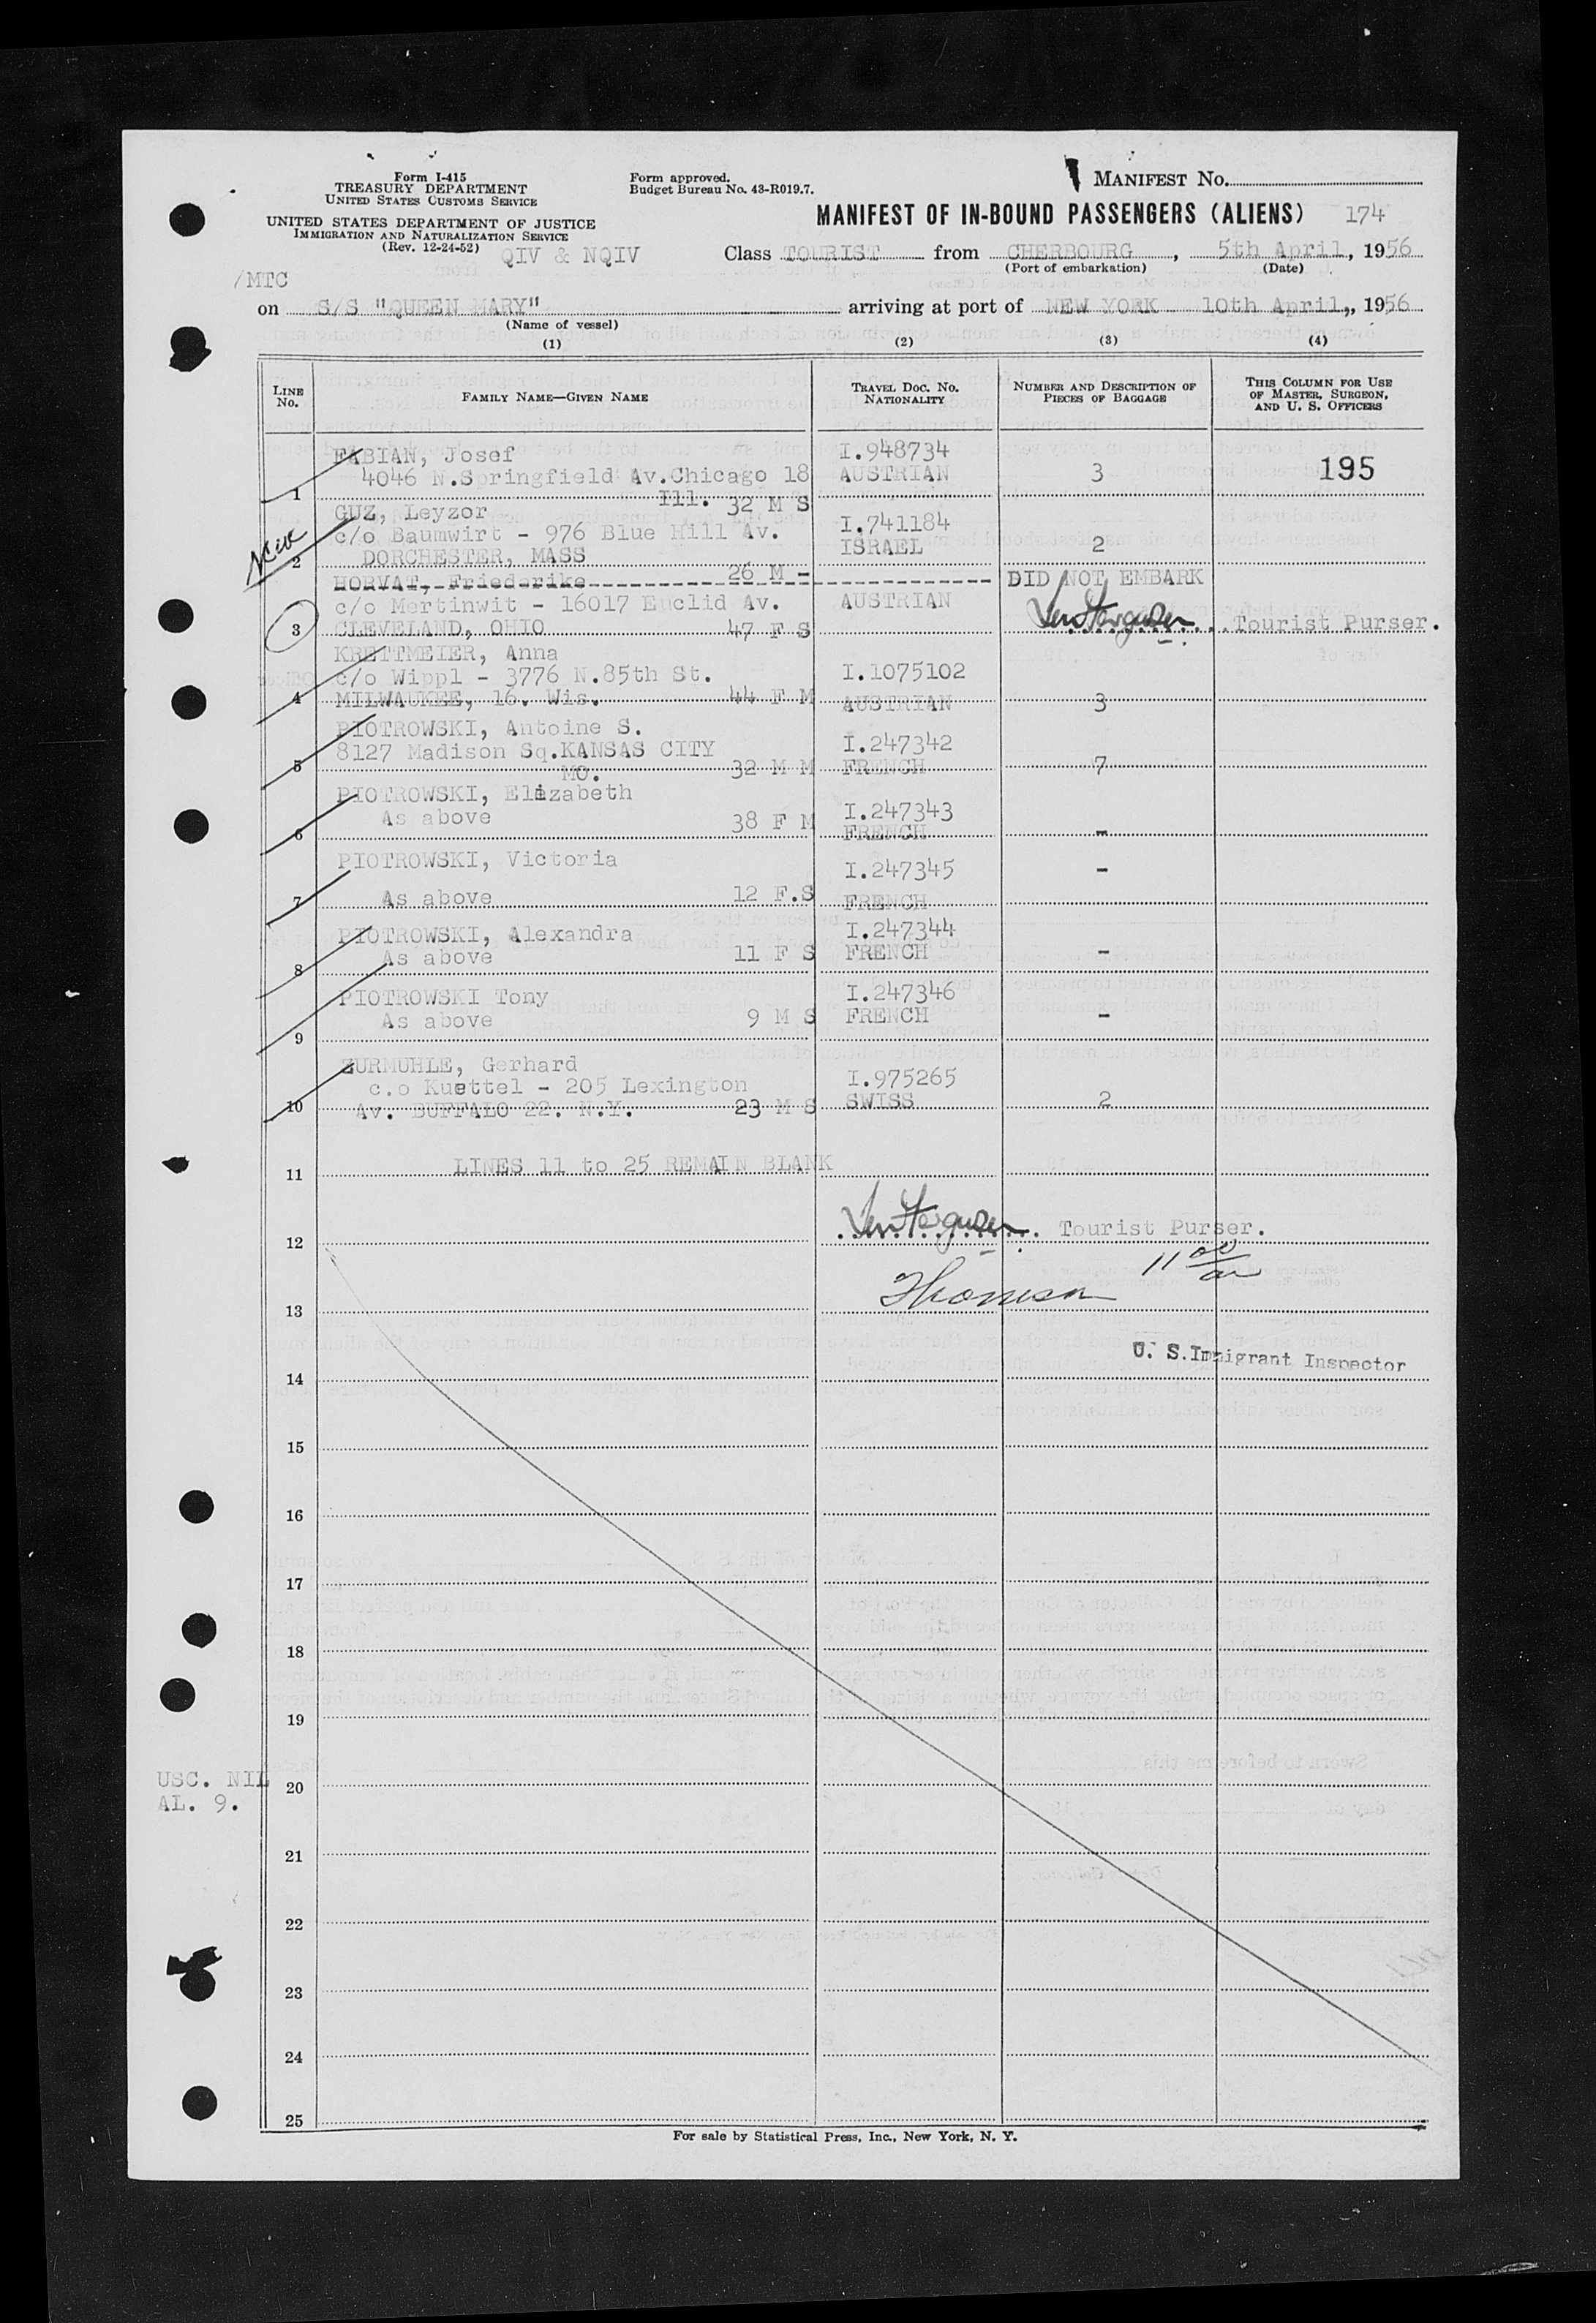 Form I-415
TREASURY DEPARTMENT
UNITED STATES CUSTOMS SERVICE
UNITED STATES DEPARTMENT OF JUSTICE
IMMIGRATION AND NATURALIZATION SERVICE
(Rev. 12-24-52)
Form approved.
Budget Bureau No. 43-R019.7.
MANIFEST No.
MANIFEST OF IN-BOUND PASSENGERS (ALIENS) 174
QIV & NQIV
Class TOURIST from CHERBOURG, 5th April, 1956
(Port of embarkation) (Date)
/MTC
on S/S "QUEEN MARY" arriving at port of NEW YORK 10th April,, 1956
(Name of vessel)
(1) (2) (3) (4)
LINE No.
FAMILY NAME—GIVEN NAME
TRAVEL DOC. NO. NATIONALITY
NUMBER AND DESCRIPTION OF PIECES OF BAGGAGE
THIS COLUMN FOR USE OF MASTER, SURGEON, AND U. S. OFFICERS
FABIAN, Josef I.948734
4046 N.Springfield Av.Chicago 18 AUSTRIAN 3 195
1 Ill. 32 M S
GUZ, Leyzor I.741184
c/o Baumwirt - 976 Blue Hill Av. ISRAEL 2
2 DORCHESTER, MASS 26 M -
HORVAT, Friederike DID NOT EMBARK
c/o Mertinwit - 16017 Euclid Av. AUSTRIAN
3 CLEVELAND, OHIO 47 F S Tourist Purser.
KRETTMEIER, Anna
c/o Wippl - 3776 N.85th St. I.1075102
4 MILWAUKEE, 16. Wis. 44 F M AUSTRIAN 3
PIOTROWSKI, Antoine S. I.247342
8127 Madison Sq.KANSAS CITY
5 MO. 32 M M FRENCH 7
PIOTROWSKI, Elizabeth I.247343
As above
6 38 F M FRENCH -
PIOTROWSKI, Victoria I.247345 -
7 As above 12 F.S FRENCH
PIOTROWSKI, Alexandra I.247344
8 As above 11 F S FRENCH -
PIOTROWSKI Tony I.247346
As above 9 M S FRENCH -
9
ZURMUHLE, Gerhard
c.o Kuettel - 205 Lexington I.975265
10 Av. BUFFALO 22. N.Y. 23 M S SWISS 2
11 LINES 11 to 25 REMAIN BLANK
12 Tourist Purser.
11 00 am
13
U. S. Immigrant Inspector
14
15
16
17
18
19
USC. NIL
20
AL. 9.
21
22
23
24
25
For sale by Statistical Press, Inc., New York, N. Y.